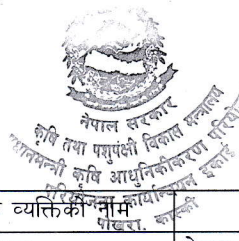 नेपाल सरकार
कृषि तथा पशुपंक्षी विकास मन्त्रालय
प्रधानमन्त्री कृषि आधुनिकीकरण परियोजना
परियोजना कार्यान्वयन इकाई
पोखरा, कास्की
व्यक्तिको नाम